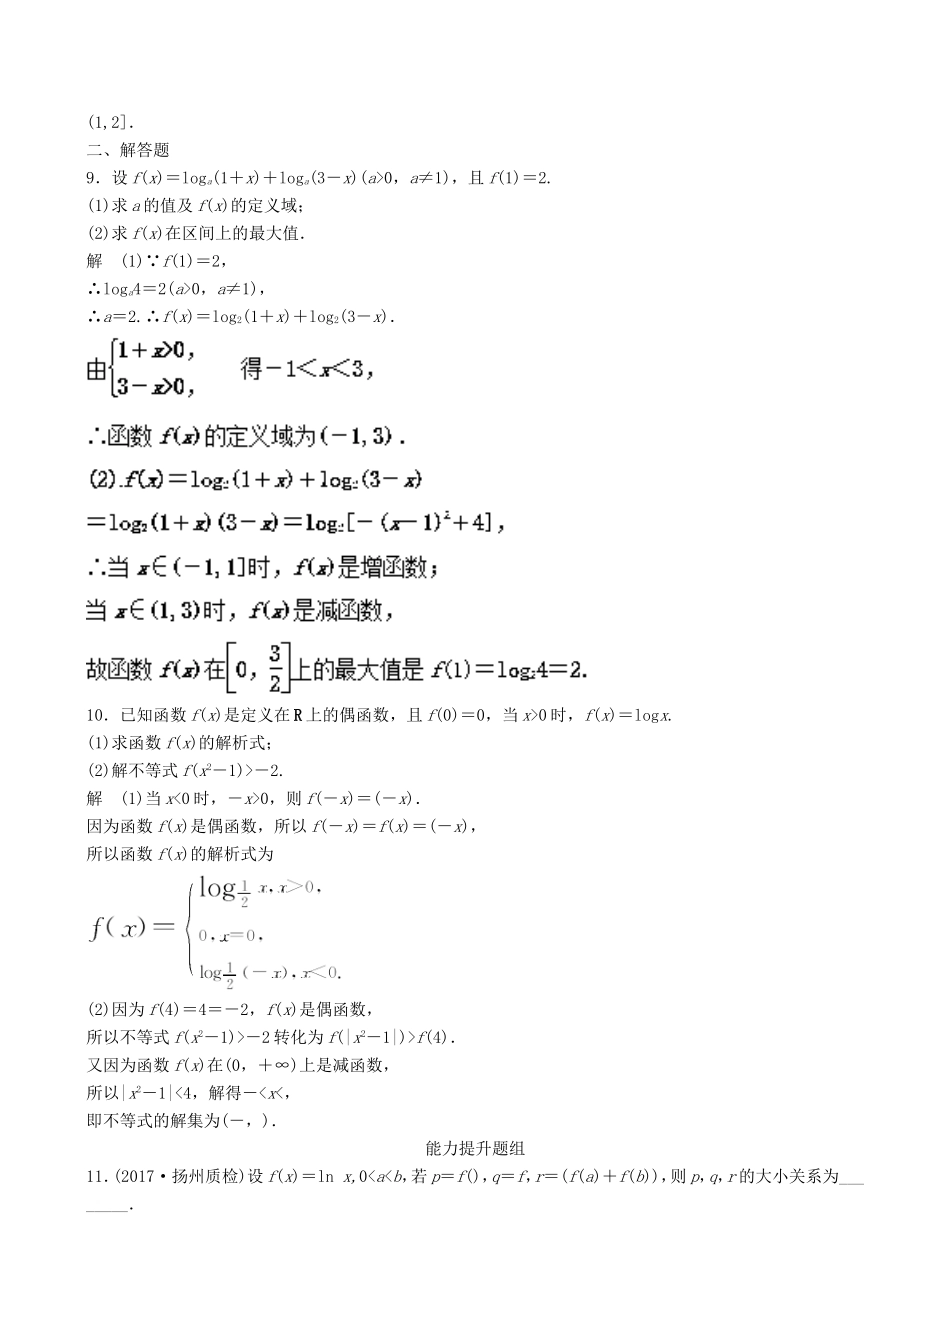 (1,2].
二、解答题
9．设 f(x)＝logₐ(1＋x)＋logₐ(3－x)(a>0，a≠1)，且 f(1)＝2.
(1)求 a 的值及 f(x)的定义域；
(2)求 f(x)在区间上的最大值．
解　(1)∵f(1)＝2，
∴logₐ4＝2(a>0，a≠1)，
∴a＝2.∴f(x)＝log₂(1＋x)＋log₂(3－x)．
由{1＋x>0，3－x>0，　得－1＜x＜3，
∴函数 f(x)的定义域为(－1,3)．
(2).f(x)＝log₂(1＋x)＋log₂(3－x)
＝log₂(1＋x)(3－x)＝log₂[－(x－1)²＋4]，
∴当 x∈(－1,1]时，f(x)是增函数；
当 x∈(1,3)时，f(x)是减函数，
故函数 f(x)在[0，3/2]上的最大值是 f(1)＝log₂4＝2.
10．已知函数 f(x)是定义在 R 上的偶函数，且 f(0)＝0，当 x>0 时，f(x)＝logx.
(1)求函数 f(x)的解析式；
(2)解不等式 f(x²－1)>－2.
解　(1)当 x<0 时，－x>0，则 f(－x)＝(－x)．
因为函数 f(x)是偶函数，所以 f(－x)＝f(x)＝(－x)，
所以函数 f(x)的解析式为
log 1/2 x，x＞0，
f(x)＝{0，x＝0，
log 1/2 (－x)，x＜0.
(2)因为 f(4)＝4＝－2，f(x)是偶函数，
所以不等式 f(x²－1)>－2 转化为 f(|x²－1|)>f(4)．
又因为函数 f(x)在(0，＋∞)上是减函数，
所以|x²－1|<4，解得－<x<，
即不等式的解集为(－，)．
能力提升题组
11.(2017·扬州质检)设 f(x)＝ln x,0<a<b,若 p＝f(),q＝f,r＝(f(a)＋f(b)),则 p,q,r 的大小关系为___
_____．